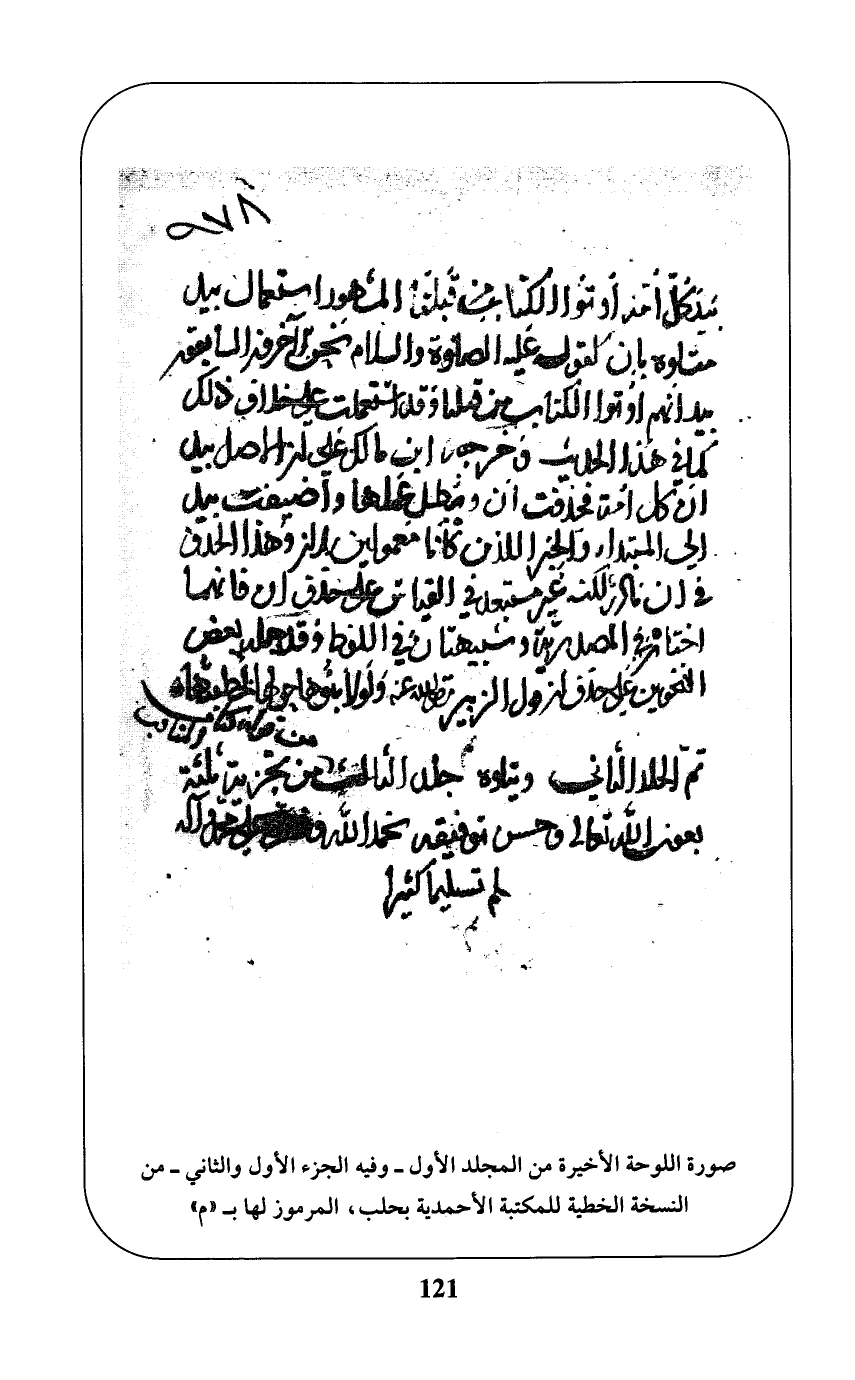 ٩٧٨
بيد كل أمة أوتوا الكتاب من قبلنا المشهور استعمال بيد
متلوه بان كقوله عليه الصلوة والسلام نحن الآخرون السابقون
بيد انهم اوتوا الكتاب من قبلنا وقد استعملت على خلاف ذلك
كما في هذا الحديث وخرجه ابن مالك على ان الاصل بيد
ان كل امة فحذفت ان وبطل عملها واضيفت بيد
الى المبتداء والخبر اللذين كانا معمولين لان وهذا الحذف
في ان نادر لكنه غير مستبعد في القياس على حذف ان فانهما
اختان في المصدرية وشبيهتان في اللفظ وقد حمل بعض
النحويين على حذف ان قول الزبير رضى الله عنه ولولا بنوها حولها لخطبتها
تم الجلد الثاني ويتلوه جلد الثالث من تجزية ثلثة
بعون الله تعالى وحسن توفيقه بحمد الله على محمد وآله
لم تسليما كثيرا
صورة اللوحة الأخيرة من المجلد الأول - وفيه الجزء الأول والثاني - من
النسخة الخطية للمكتبة الأحمدية بحلب، المرموز لها بـ «م»
121